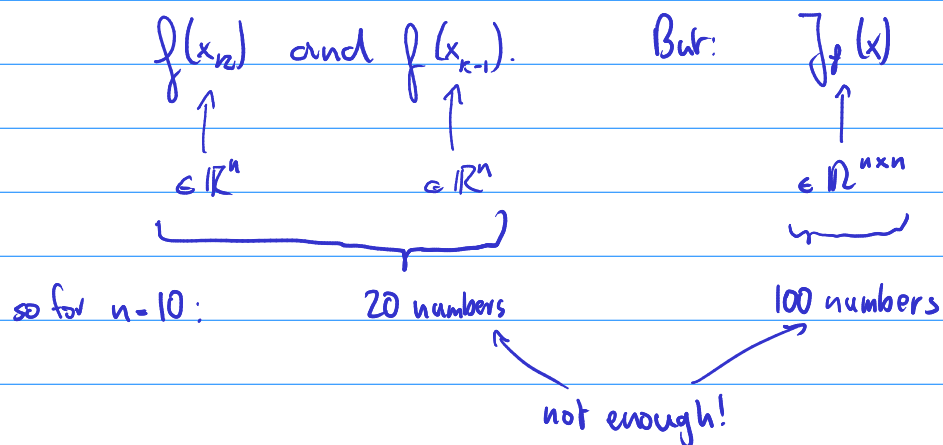 f(x_k) and f(x_{k-1}). But: J_f(x)
∈ ℝ^n ∈ ℝ^n ∈ ℝ^{n×n}
so for n=10: 20 numbers 100 numbers
not enough!